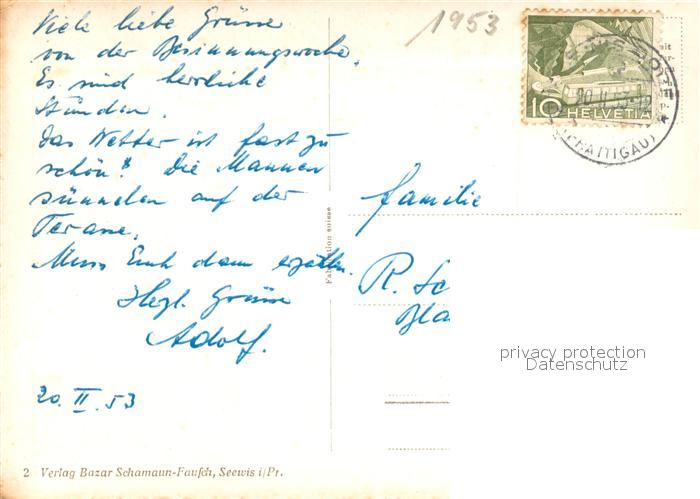 Viele liebe Grüsse
von der Besinnungswoche.
Es sind herrliche
Stunden.
Das Wetter ist fast zu
schön! Die Mannen
sünnelen auf der
Terasse.
Muss Euch dann erzählen.
Hezl. Grüsse
Adolf.
20. II. 53
2 Verlag Bazar Schamaun-Fausch, Seewis i/Pr.
Fabrikation suisse
1953
10 HELVETIA
20.II.53-12
Familie
R. Sc
Bla
privacy protection
Datenschutz